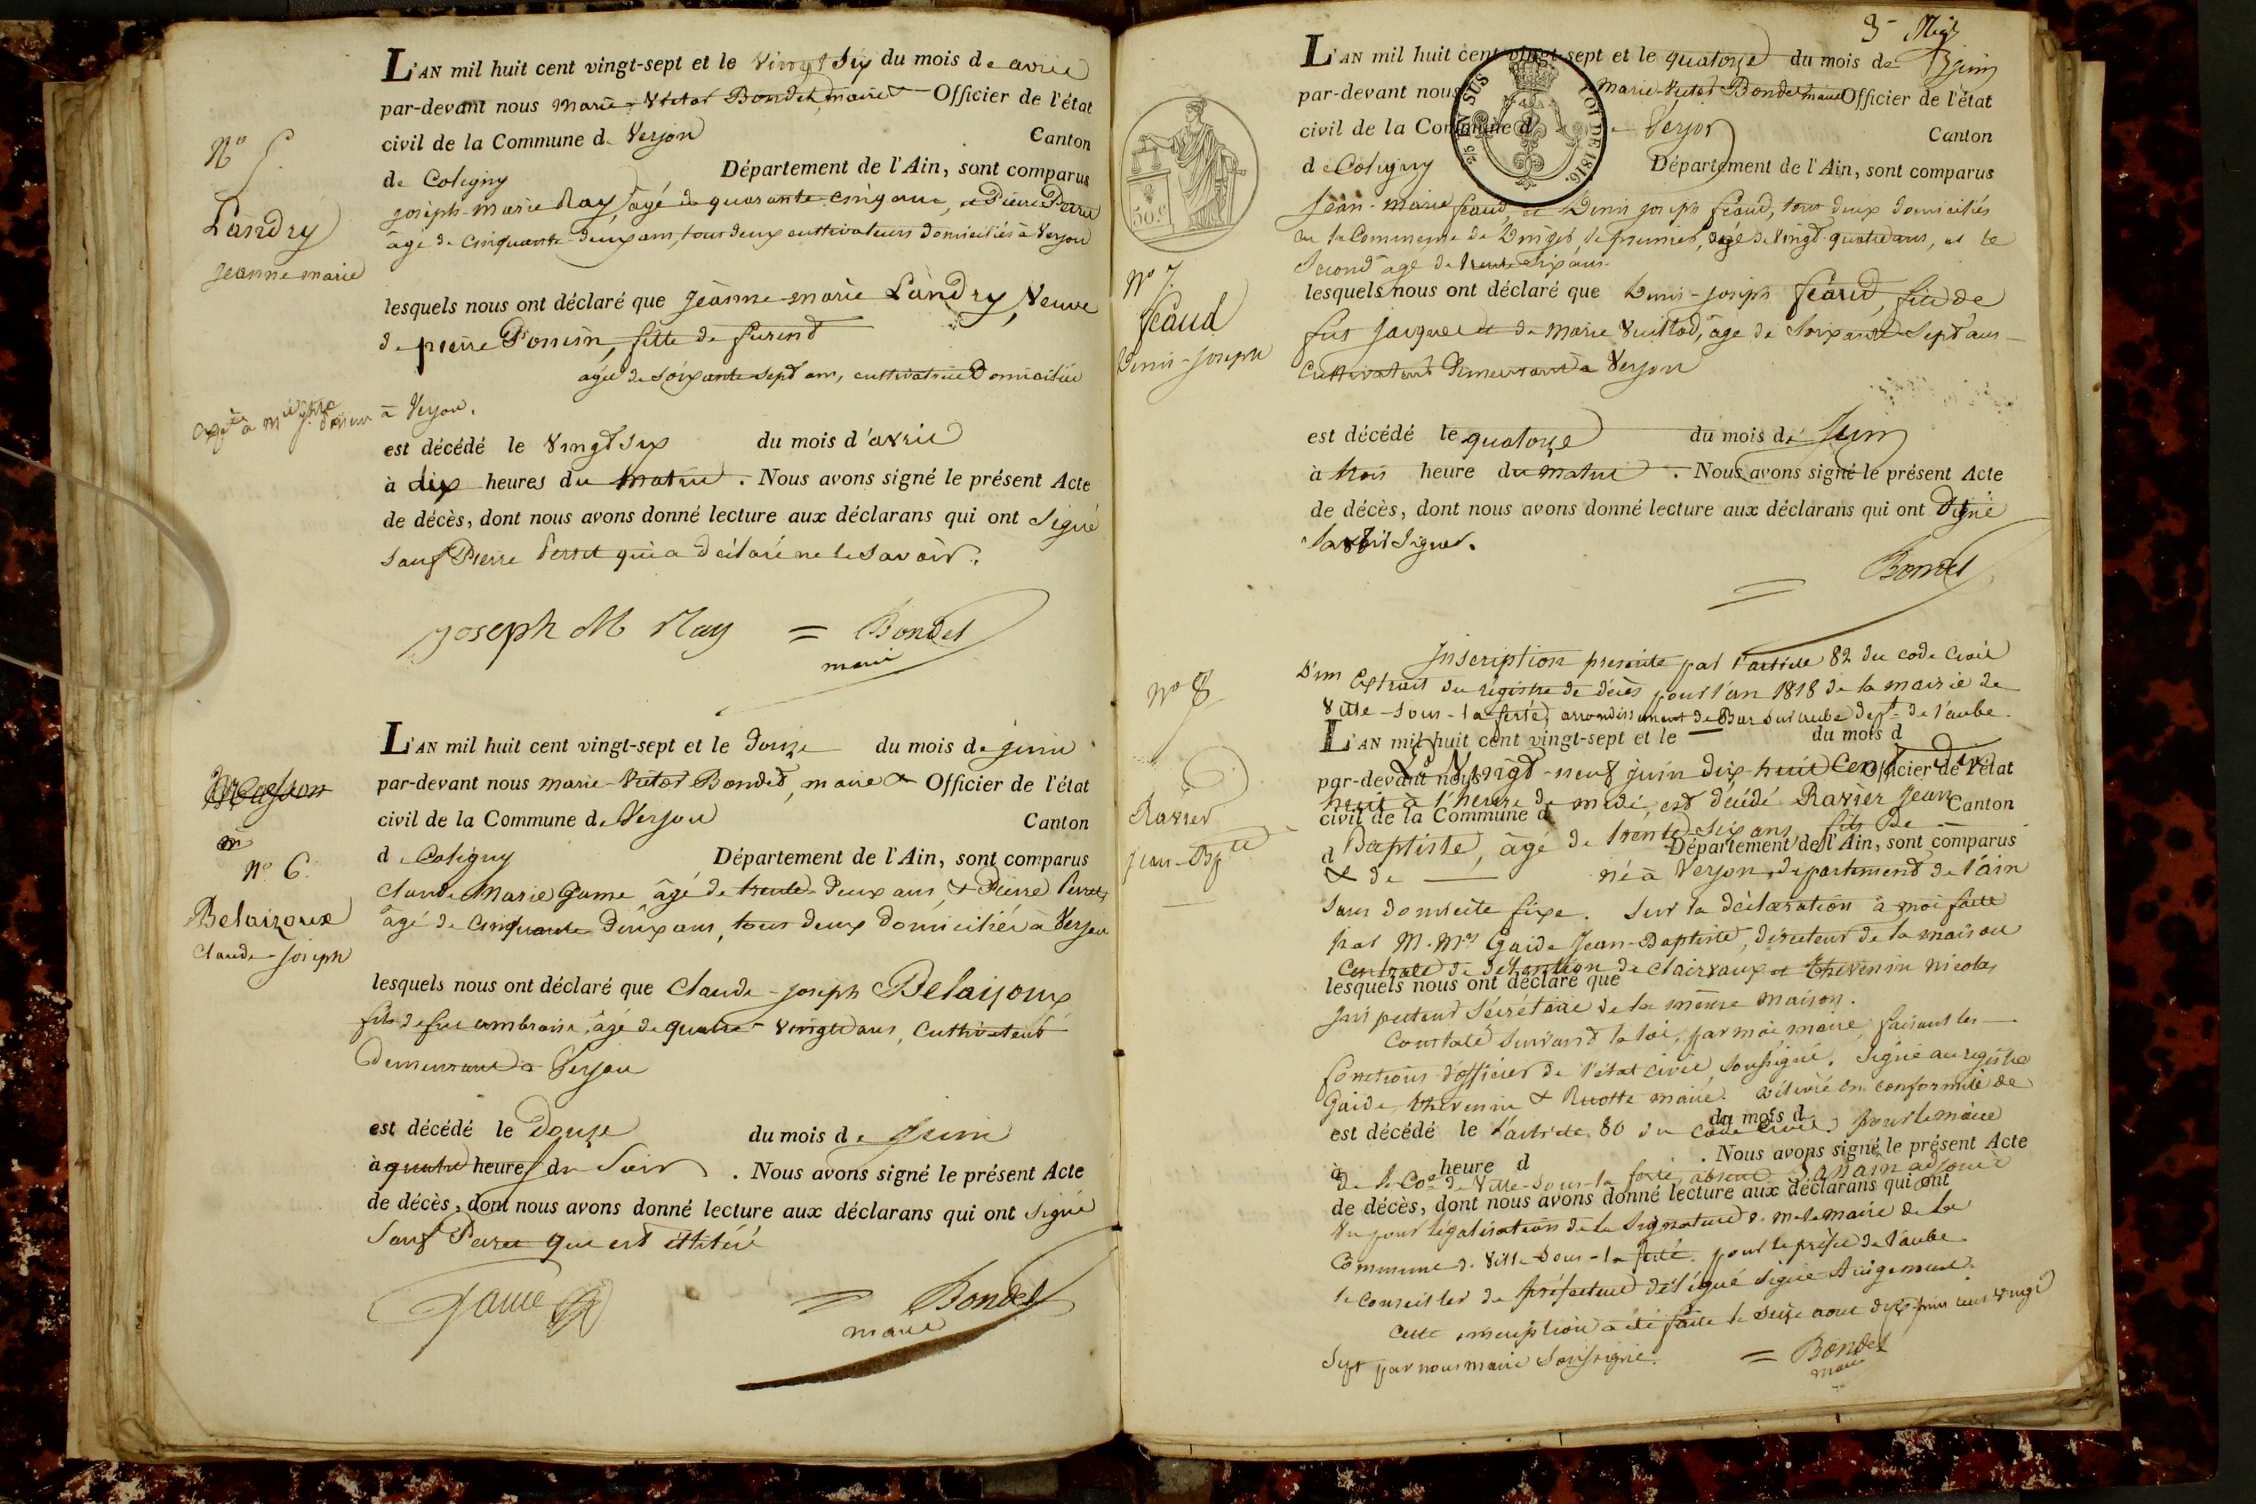 N° 5.
Landry
jeanne marie
L'AN mil huit cent vingt-sept et le vingt six du mois de avril
par-devant nous marie-Victor Bondet, maire & Officier de l'état
civil de la Commune de Verjon Canton
de Coligny Département de l'Ain, sont comparus
joseph-marie Ray, âgé de quarante cinq ans, et Pierre Perret
âgé de cinquante-deux ans, tous deux cultivateurs domiciliés à Verjon
lesquels nous ont déclaré que jeanne-marie Landry, Veuve
de pierre Ponsin, fille de
âgée de soixante-sept ans, cultivatrice Domiciliée
à Verjon.
est décédé le vingt six du mois d'avril
à dix heures du matin. Nous avons signé le présent Acte
de décès, dont nous avons donné lecture aux déclarans qui ont signé
sauf Pierre Perret qui a déclaré ne le savoir.
joseph M Ray = Bondet
maire
N° 6.
Belaizoux
Claude-joseph
L'AN mil huit cent vingt-sept et le douze du mois de juin
par-devant nous marie-Victor Bondet, maire & Officier de l'état
civil de la Commune de Verjon Canton
de Coligny Département de l'Ain, sont comparus
Claude Marie Game, âgé de trente-deux ans, & Pierre Perret,
âgé de cinquante deux ans, tous deux domiciliés à Verjon
lesquels nous ont déclaré que Claude-joseph Belaizoux
fils de feu ambroise, âgé de quatre-vingts ans, Cultivateur
Demeurant à Verjon
est décédé le Douze du mois de Juin
à quatre heures du Soir. Nous avons signé le présent Acte
de décès, dont nous avons donné lecture aux déclarans qui ont signé
Sauf Perret que est illitéré
Game = Bondet
maire
N° 7.
féaud
Denis-joseph
L'AN mil huit cent vingt-sept et le quatorze du mois de Juin
par-devant nous Marie-Victor Bondet maire Officier de l'état
civil de la Commune de Verjon Canton
de Coligny Département de l'Ain, sont comparus
Jean-marie féaud, et Denis joseph féaud, tous deux domiciliés
en la Commune de, le premier, âgé de vingt-quatre ans, et le
Second âgé de trente six ans
lesquels nous ont déclaré que Denis-joseph féaud, fils de
feu jacques et de Marie Vuillod, âgé de Soixante-Sept ans
Cultivateur Demeurant à Verjon
est décédé le quatorze du mois de Juin
à trois heure du matin. Nous avons signé le présent Acte
de décès, dont nous avons donné lecture aux déclarans qui ont
signer.
Bondet
N° 8
Ravier
Jean-Bpte
Inscription prescrite par l'article 82 du code Civil
D'un Extrait du régistre de décès pour l'an 1818 de la mairie de
Ville-sous-la ferté, arrondissement de Bar sur aube dept. de l'aube.
L'AN mil huit cent vingt-sept et le du mois d
par-devant nous Officier de l'état
Le Vingt-neuf juin dix huit cent dix
huit à l'heure de midi, est décédé Ravier Jean
civil de la Commune d Canton
Baptiste, âgé de trente-six ans, fils de
d Département de l'Ain, sont comparus
& de né à Verjon, département de l'ain
sans domicile fixe. Sur la déclaration à moi faite
par M.Mrs Gaide Jean-Baptiste, directeur de la maison
Centrale de détention de Clairvaux et Thevenin Nicolas
lesquels nous ont déclaré que
Inspecteur Sécrétaire de la même maison.
Constaté suivant la loi, par moi maire, faisant les
fonctions d'officier de l'état civil, soussigné. Signé au régistre
Gaide, thevenin & Ruotte maire. Délivré en conformité de
du mois d
est décédé le l'article 80 du Code Civil. pour le maire
Nous avons signé le présent Acte
à heure d
de la Cne de Ville-sous-la ferté, absent. adjoint
de décès, dont nous avons donné lecture aux déclarans qui ont
Vu pour légalisation de la Signature de M. le maire de la
Commune de Ville sous-la ferté. pour le préfet de l'aube
le Conseiller de préfecture délégué signé
Cette inscription a été faite le seize aout dix huit cent vingt
Sept par nous maire Soussigné. = Bondet
maire
50c.
25 EN SUS
LOI DE 1816.